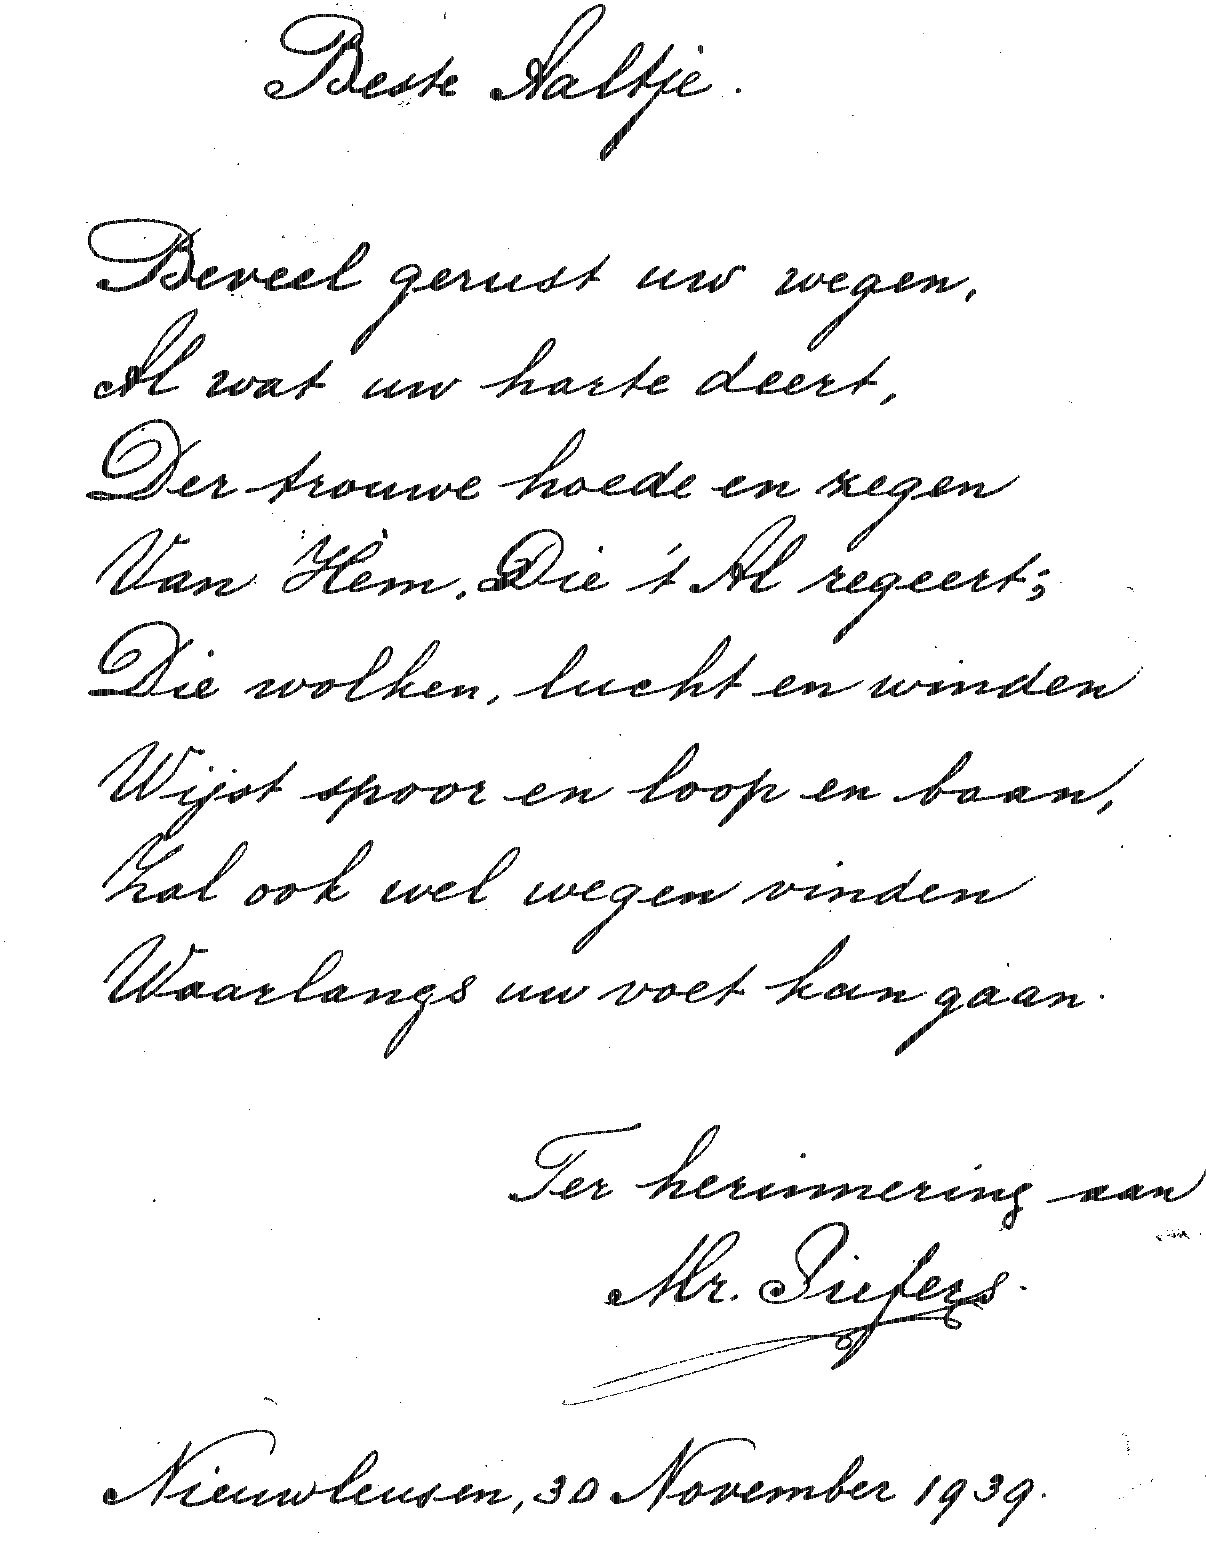 Beste Aaltje.
Beveel gerust uw wegen,
Al wat uw harte deert,
Der trouwe hoede en zegen
Van Hèm, Die 't Al regeert;
Die wolken, lucht en winden
Wijst spoor en loop en baan,
Zal ook wel wegen vinden
Waarlangs uw voet kan gaan.
Ter herinnering aan
Mr.
Nieuwleusen, 30 November 1939.